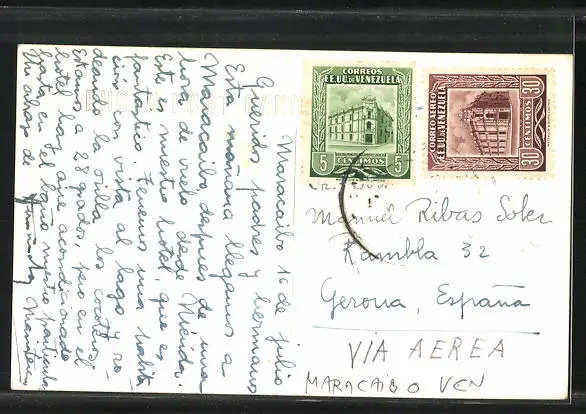 Maracaibo 16 de julio
Queridos padres y hermano
Esta mañana llegamos a
Maracaibo después de una
hora de vuelo desde Mérida.
Este es nuestro hotel, que es
fantástico. Tenemos una habita
ción con vista al lago y ro-
deando la orilla los cocoteros.
Estamos a 28 grados, pero en el
hotel hay aire acondicionado
hasta en el baño nuestro particular
Abrazos de
CORREOS
EE.UU. DE VENEZUELA
5 CENTIMOS 5
CORREO AEREO
EE.UU. DE VENEZUELA
30 CENTIMOS 30
Manuel Ribas Soler
Rambla 32
Gerona, España
VIA AEREA
MARACAIBO VEN